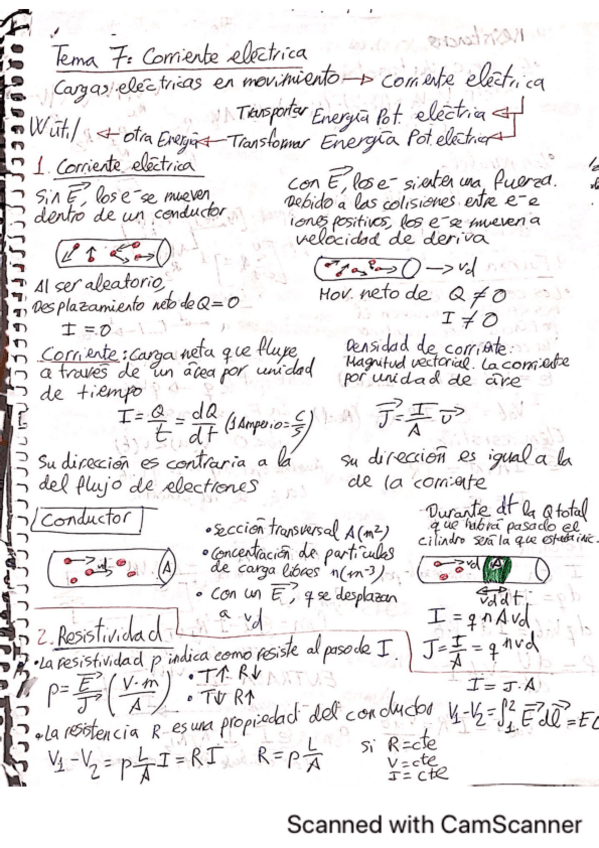 Tema 7: Corriente eléctrica
Cargas eléctricas en movimiento → Corriente eléctrica
Transportar Energía Pot. eléctrica
W útil ← otra Energía ← Transformar Energía Pot. eléctrica
1. Corriente eléctrica
Sin E⃗, los e⁻ se mueven
dentro de un conductor
Al ser aleatorio,
Desplazamiento neto de Q = 0
I = 0
Con E⃗, los e⁻ sienten una fuerza.
Debido a las colisiones entre e⁻ e
iones positivos, los e⁻ se mueven a
velocidad de deriva
→ vd
Mov. neto de Q ≠ 0
I ≠ 0
Corriente: Carga neta que fluye
a través de un área por unidad
de tiempo
I = Q/t = dQ/dt (1 Amperio = C/s)
Su dirección es contraria a la
del flujo de electrones
Densidad de corriente:
Magnitud vectorial. La corriente
por unidad de área
J⃗ = I/A v⃗
su dirección es igual a la
de la corriente
Conductor
vd
A
• Sección transversal A (m²)
• Concentración de partículas
de carga libres n (m⁻³)
• Con un E⃗, q se desplazan
a vd
Durante dt la Q total
que habrá pasado el
cilindro será la que
vd
A
vd dt
I = q n A vd
J = I/A = q n vd
I = J·A
2. Resistividad
• La resistividad ρ indica como resiste al paso de I.
ρ = E⃗/J⃗ (V·m/A)
• T↑ R↓
• T↓ R↑
• La resistencia R es una propiedad del conductor
V₁-V₂ = ρ L/A I = R I
R = ρ L/A
si R = cte
V = cte
I = cte
V₁-V₂ = ∫₁² E⃗ dl⃗ = EL
Scanned with CamScanner